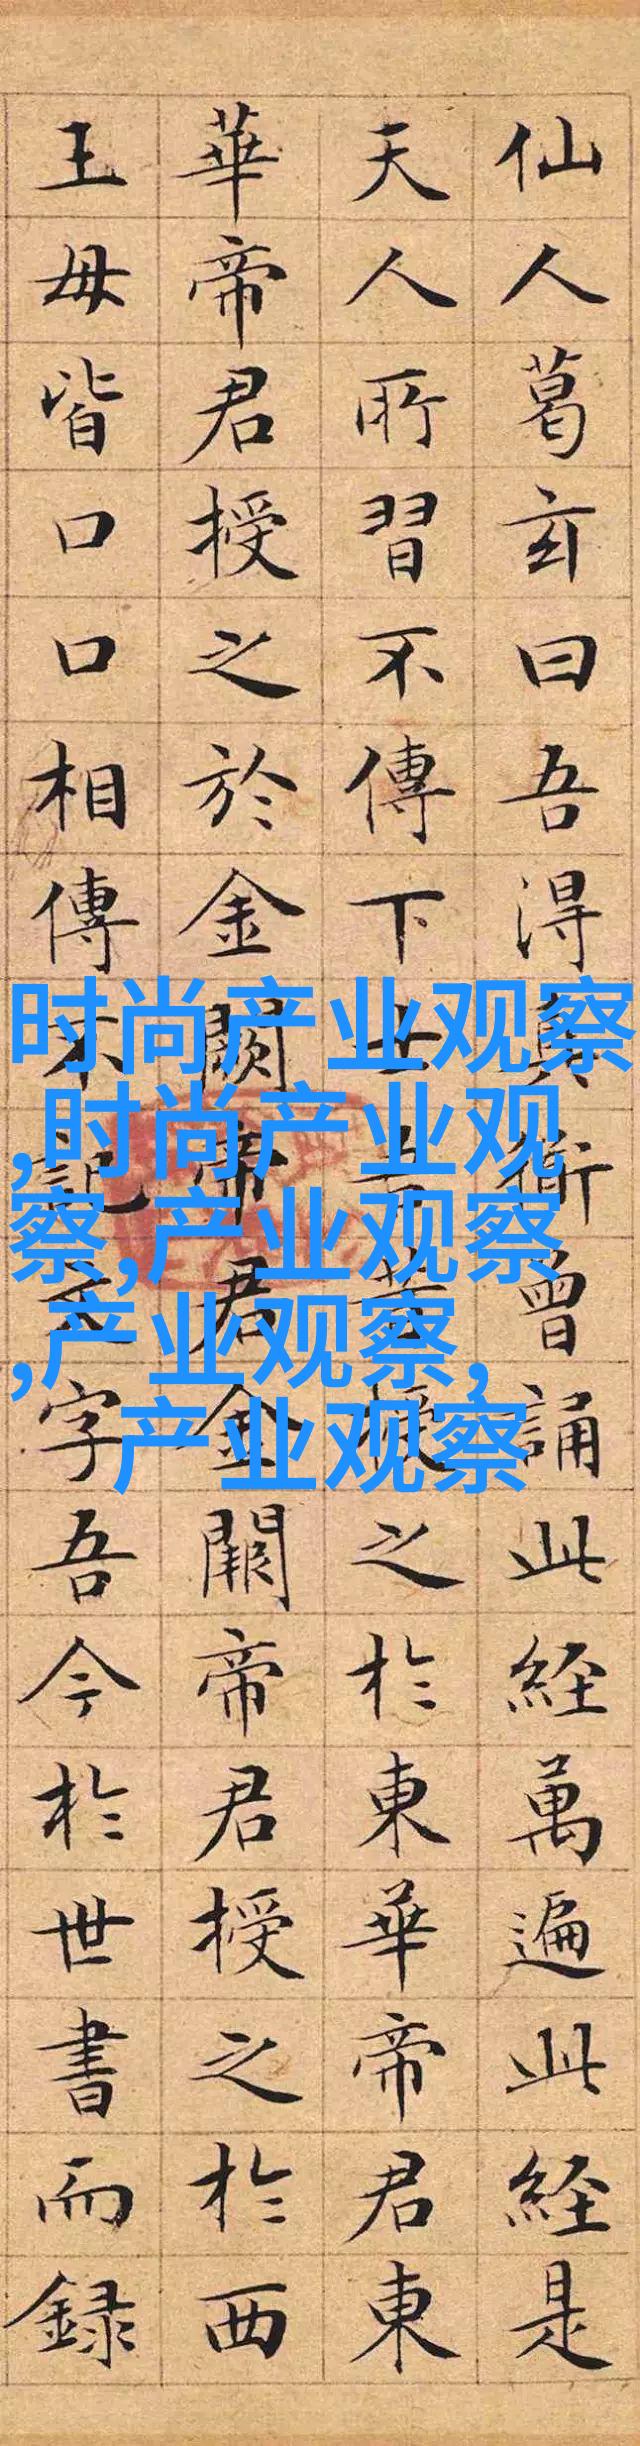 仙人葛玄曰吾得真術曾誦此経萬遍此経是
天人所習不傳下士吾昔授之於東華帝君東
華帝君授之於金闕帝君金闕帝君授之於西
王母皆口口相傳不記文字吾今於世書而録
时尚产业观察
,时尚产业观
察,产业观察
,产业观察,
产业观察